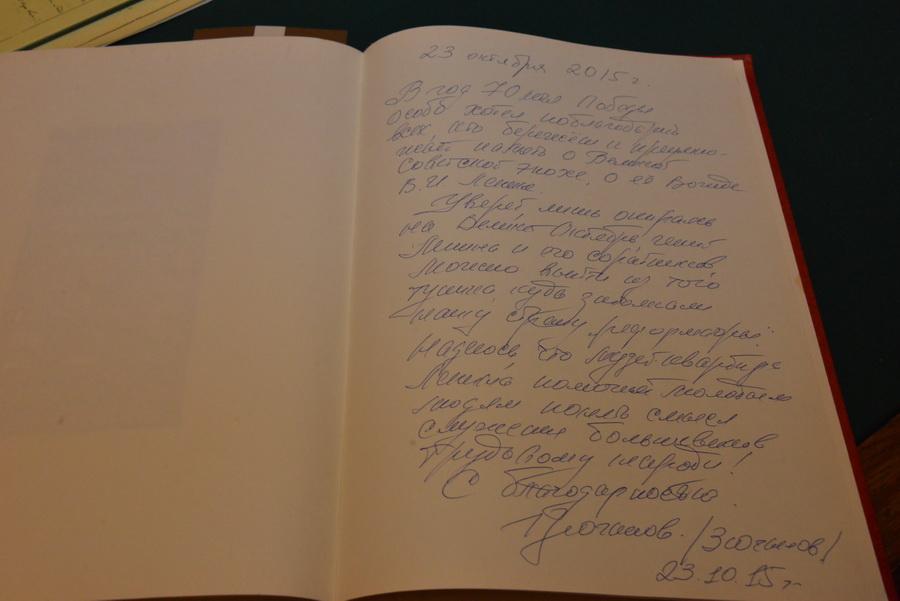 23 октября 2015 г.
В год 70 летия Победы
особо хотел поблагодарить
всех, кто бережет и преумно-
жает память о Великой
Советской эпохе, о её Вожде
В.И Ленине.
Уверен, лишь опираясь
на Велик Октябрь, гений
Ленина и его соратников
можно выйти из того
тупика куда загнали
нашу страну "реформаторы"
Надеюсь что музей-квартира
Ленина поможет молодым
людям понять смысл
служения большевиков
Трудовому народу!
С благодарностью
/Зюганов/
23.10.15 г